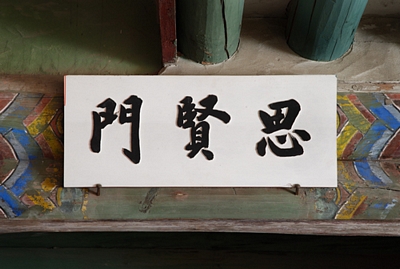 思賢門